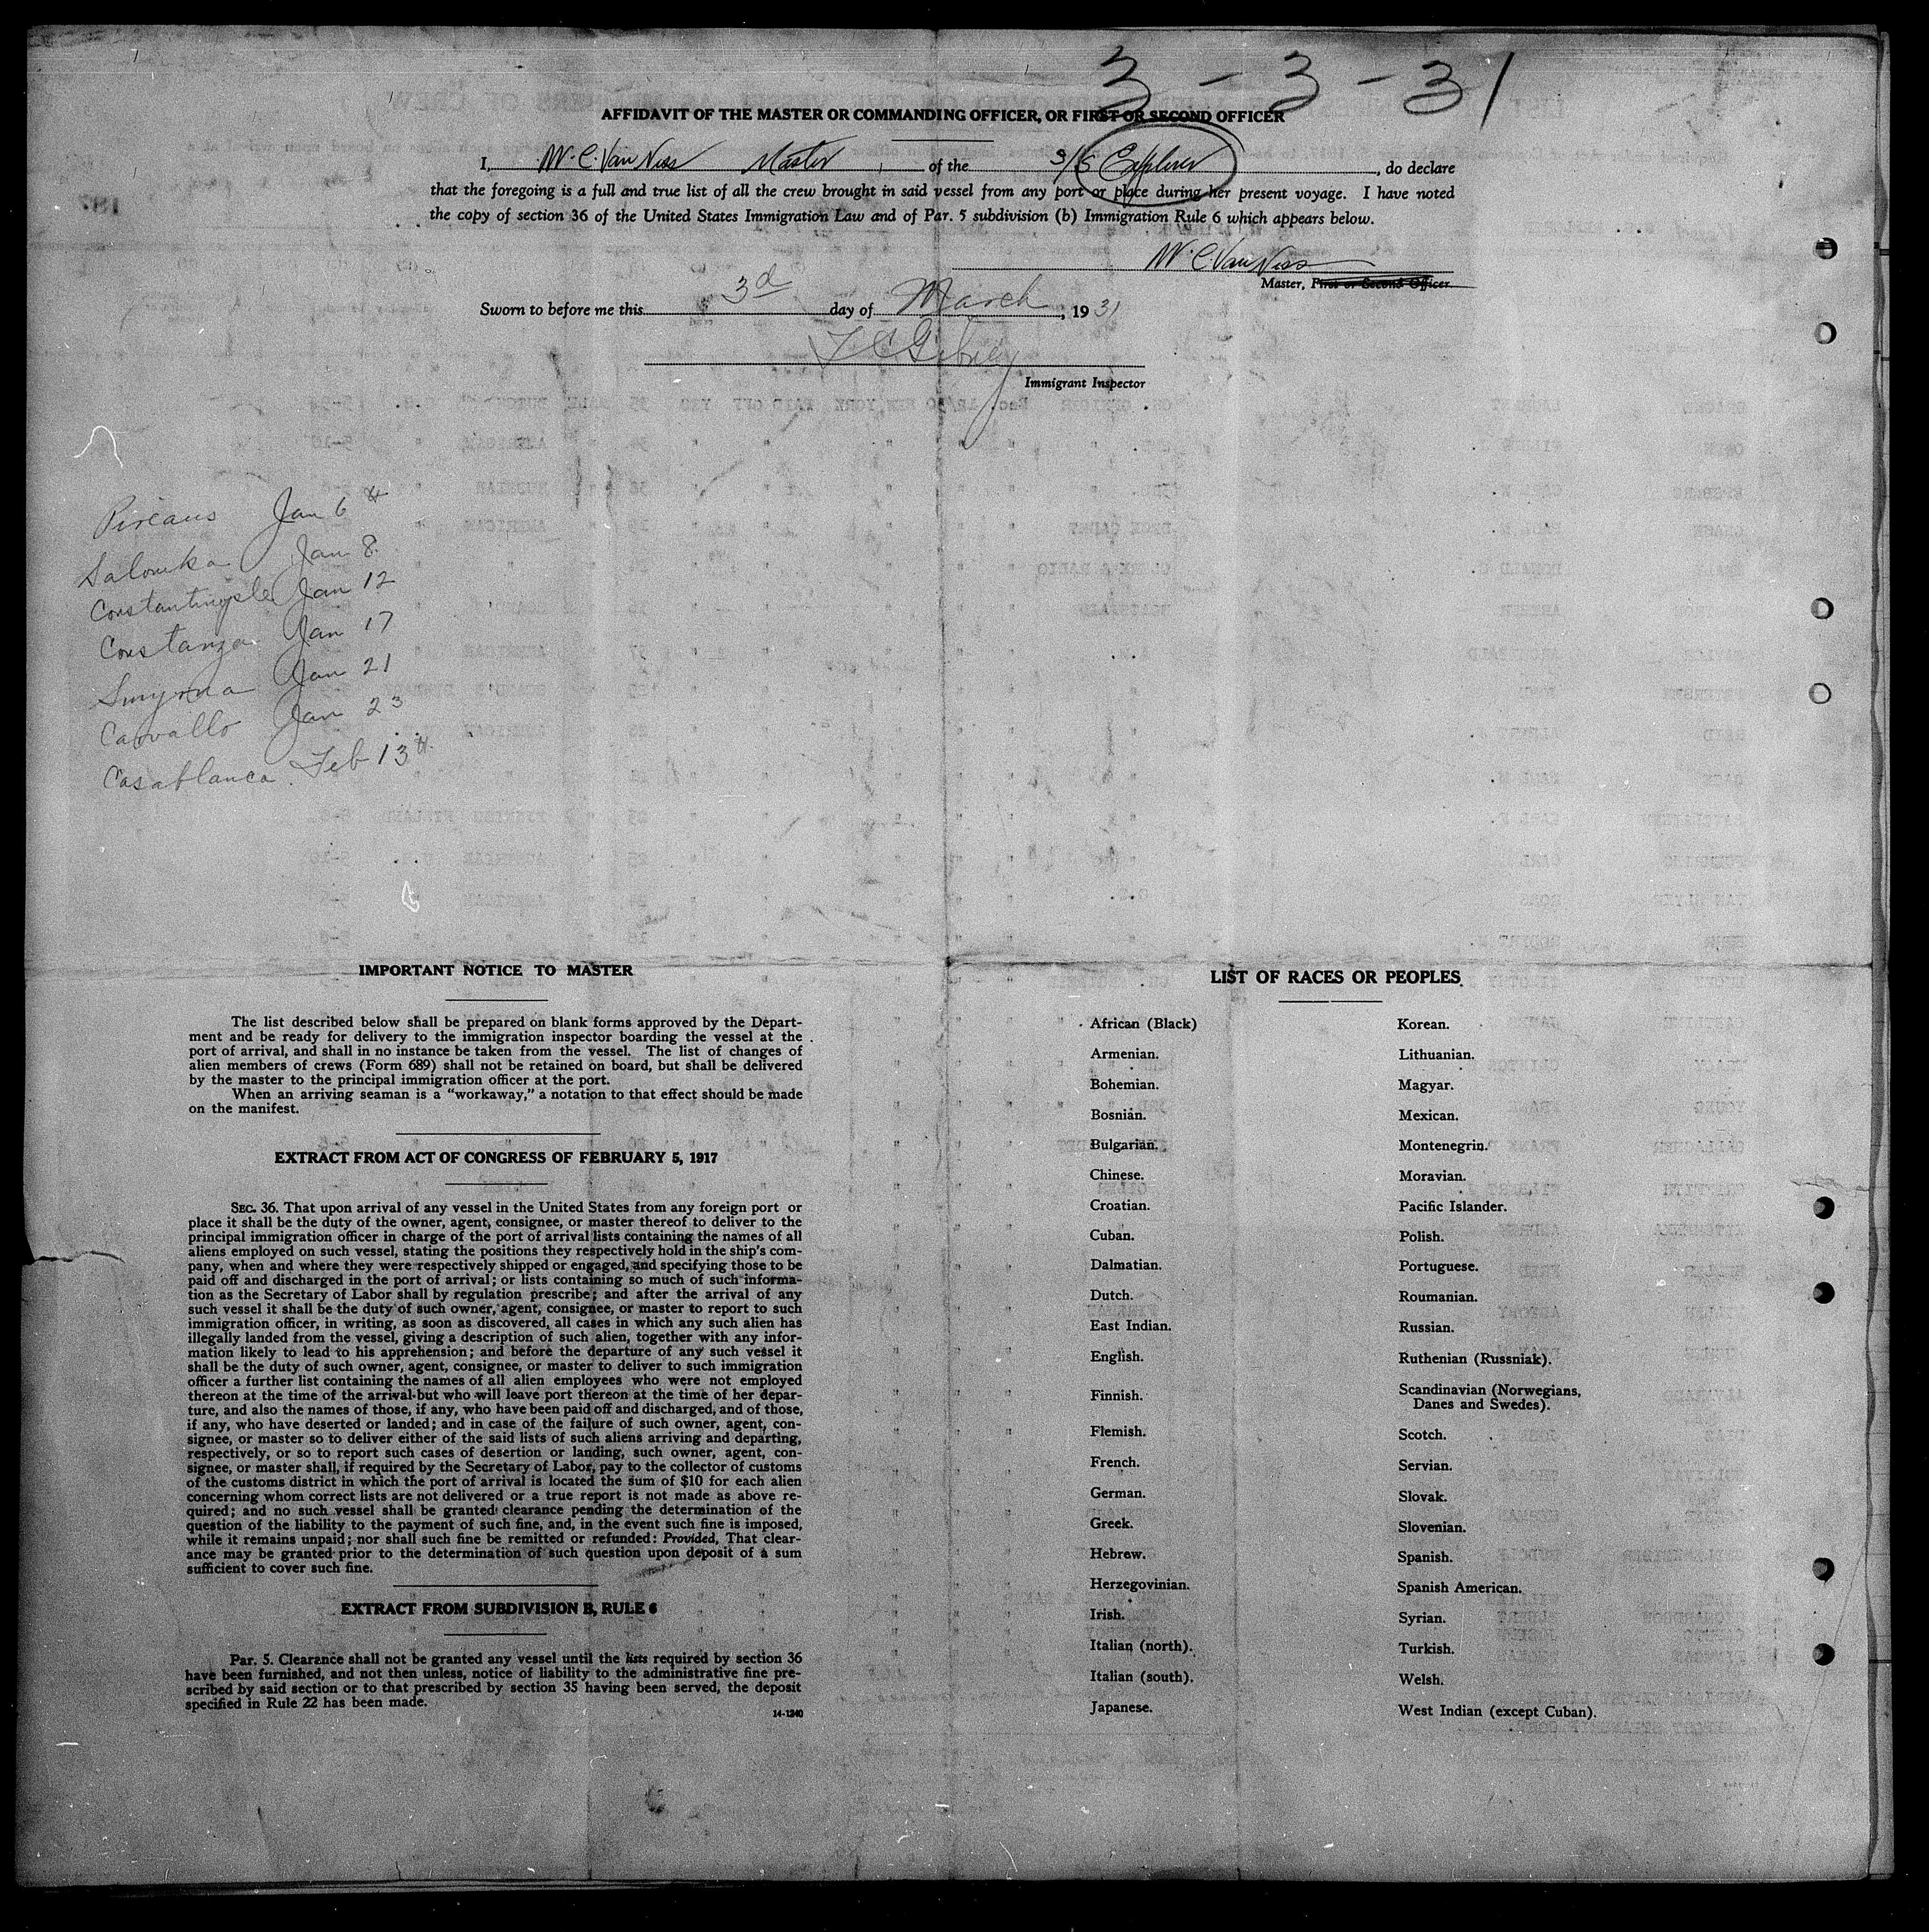 3 - 3 - 31
AFFIDAVIT OF THE MASTER OR COMMANDING OFFICER, OR FIRST OR SECOND OFFICER
I, W. C. Van Ness Master, of the S/S Explorer, do declare
that the foregoing is a full and true list of all the crew brought in said vessel from any port or place during her present voyage. I have noted
the copy of section 36 of the United States Immigration Law and of Par. 5 subdivision (b) Immigration Rule 6 which appears below.
W. C. Van Ness
Master, First or Second Officer.
Sworn to before me this 3d day of March, 1931
Immigrant Inspector
Pireaus Jan 6th
Salonika Jan 8
Constantinople Jan 12
Constanza Jan 17
Smyrna Jan 21
Cavallo Jan 23
Casablanca. Feb 13th.
IMPORTANT NOTICE TO MASTER
The list described below shall be prepared on blank forms approved by the Depart-
ment and be ready for delivery to the immigration inspector boarding the vessel at the
port of arrival, and shall in no instance be taken from the vessel. The list of changes of
alien members of crews (Form 689) shall not be retained on board, but shall be delivered
by the master to the principal immigration officer at the port.
When an arriving seaman is a “workaway,” a notation to that effect should be made
on the manifest.
EXTRACT FROM ACT OF CONGRESS OF FEBRUARY 5, 1917
SEC. 36. That upon arrival of any vessel in the United States from any foreign port or
place it shall be the duty of the owner, agent, consignee, or master thereof to deliver to the
principal immigration officer in charge of the port of arrival lists containing the names of all
aliens employed on such vessel, stating the positions they respectively hold in the ship's com-
pany, when and where they were respectively shipped or engaged, and specifying those to be
paid off and discharged in the port of arrival; or lists containing so much of such informa-
tion as the Secretary of Labor shall by regulation prescribe; and after the arrival of any
such vessel it shall be the duty of such owner, agent, consignee, or master to report to such
immigration officer, in writing, as soon as discovered, all cases in which any such alien has
illegally landed from the vessel, giving a description of such alien, together with any infor-
mation likely to lead to his apprehension; and before the departure of any such vessel it
shall be the duty of such owner, agent, consignee, or master to deliver to such immigration
officer a further list containing the names of all alien employees who were not employed
thereon at the time of the arrival but who will leave port thereon at the time of her depar-
ture, and also the names of those, if any, who have been paid off and discharged, and of those,
if any, who have deserted or landed; and in case of the failure of such owner, agent, con-
signee, or master so to deliver either of the said lists of such aliens arriving and departing,
respectively, or so to report such cases of desertion or landing, such owner, agent, con-
signee, or master shall, if required by the Secretary of Labor, pay to the collector of customs
of the customs district in which the port of arrival is located the sum of $10 for each alien
concerning whom correct lists are not delivered or a true report is not made as above re-
quired; and no such vessel shall be granted clearance pending the determination of the
question of the liability to the payment of such fine, and, in the event such fine is imposed,
while it remains unpaid; nor shall such fine be remitted or refunded: Provided, That clear-
ance may be granted prior to the determination of such question upon deposit of a sum
sufficient to cover such fine.
EXTRACT FROM SUBDIVISION B, RULE 6
Par. 5. Clearance shall not be granted any vessel until the lists required by section 36
have been furnished, and not then unless, notice of liability to the administrative fine pre-
scribed by said section or to that prescribed by section 35 having been served, the deposit
specified in Rule 22 has been made.
14-1240
LIST OF RACES OR PEOPLES
African (Black)
Armenian.
Bohemian.
Bosnian.
Bulgarian.
Chinese.
Croatian.
Cuban.
Dalmatian.
Dutch.
East Indian.
English.
Finnish.
Flemish.
French.
German.
Greek.
Hebrew.
Herzegovinian.
Irish.
Italian (north).
Italian (south).
Japanese.
Korean.
Lithuanian.
Magyar.
Mexican.
Montenegrin.
Moravian.
Pacific Islander.
Polish.
Portuguese.
Roumanian.
Russian.
Ruthenian (Russniak).
Scandinavian (Norwegians,
Danes and Swedes).
Scotch.
Servian.
Slovak.
Slovenian.
Spanish.
Spanish American.
Syrian.
Turkish.
Welsh.
West Indian (except Cuban).